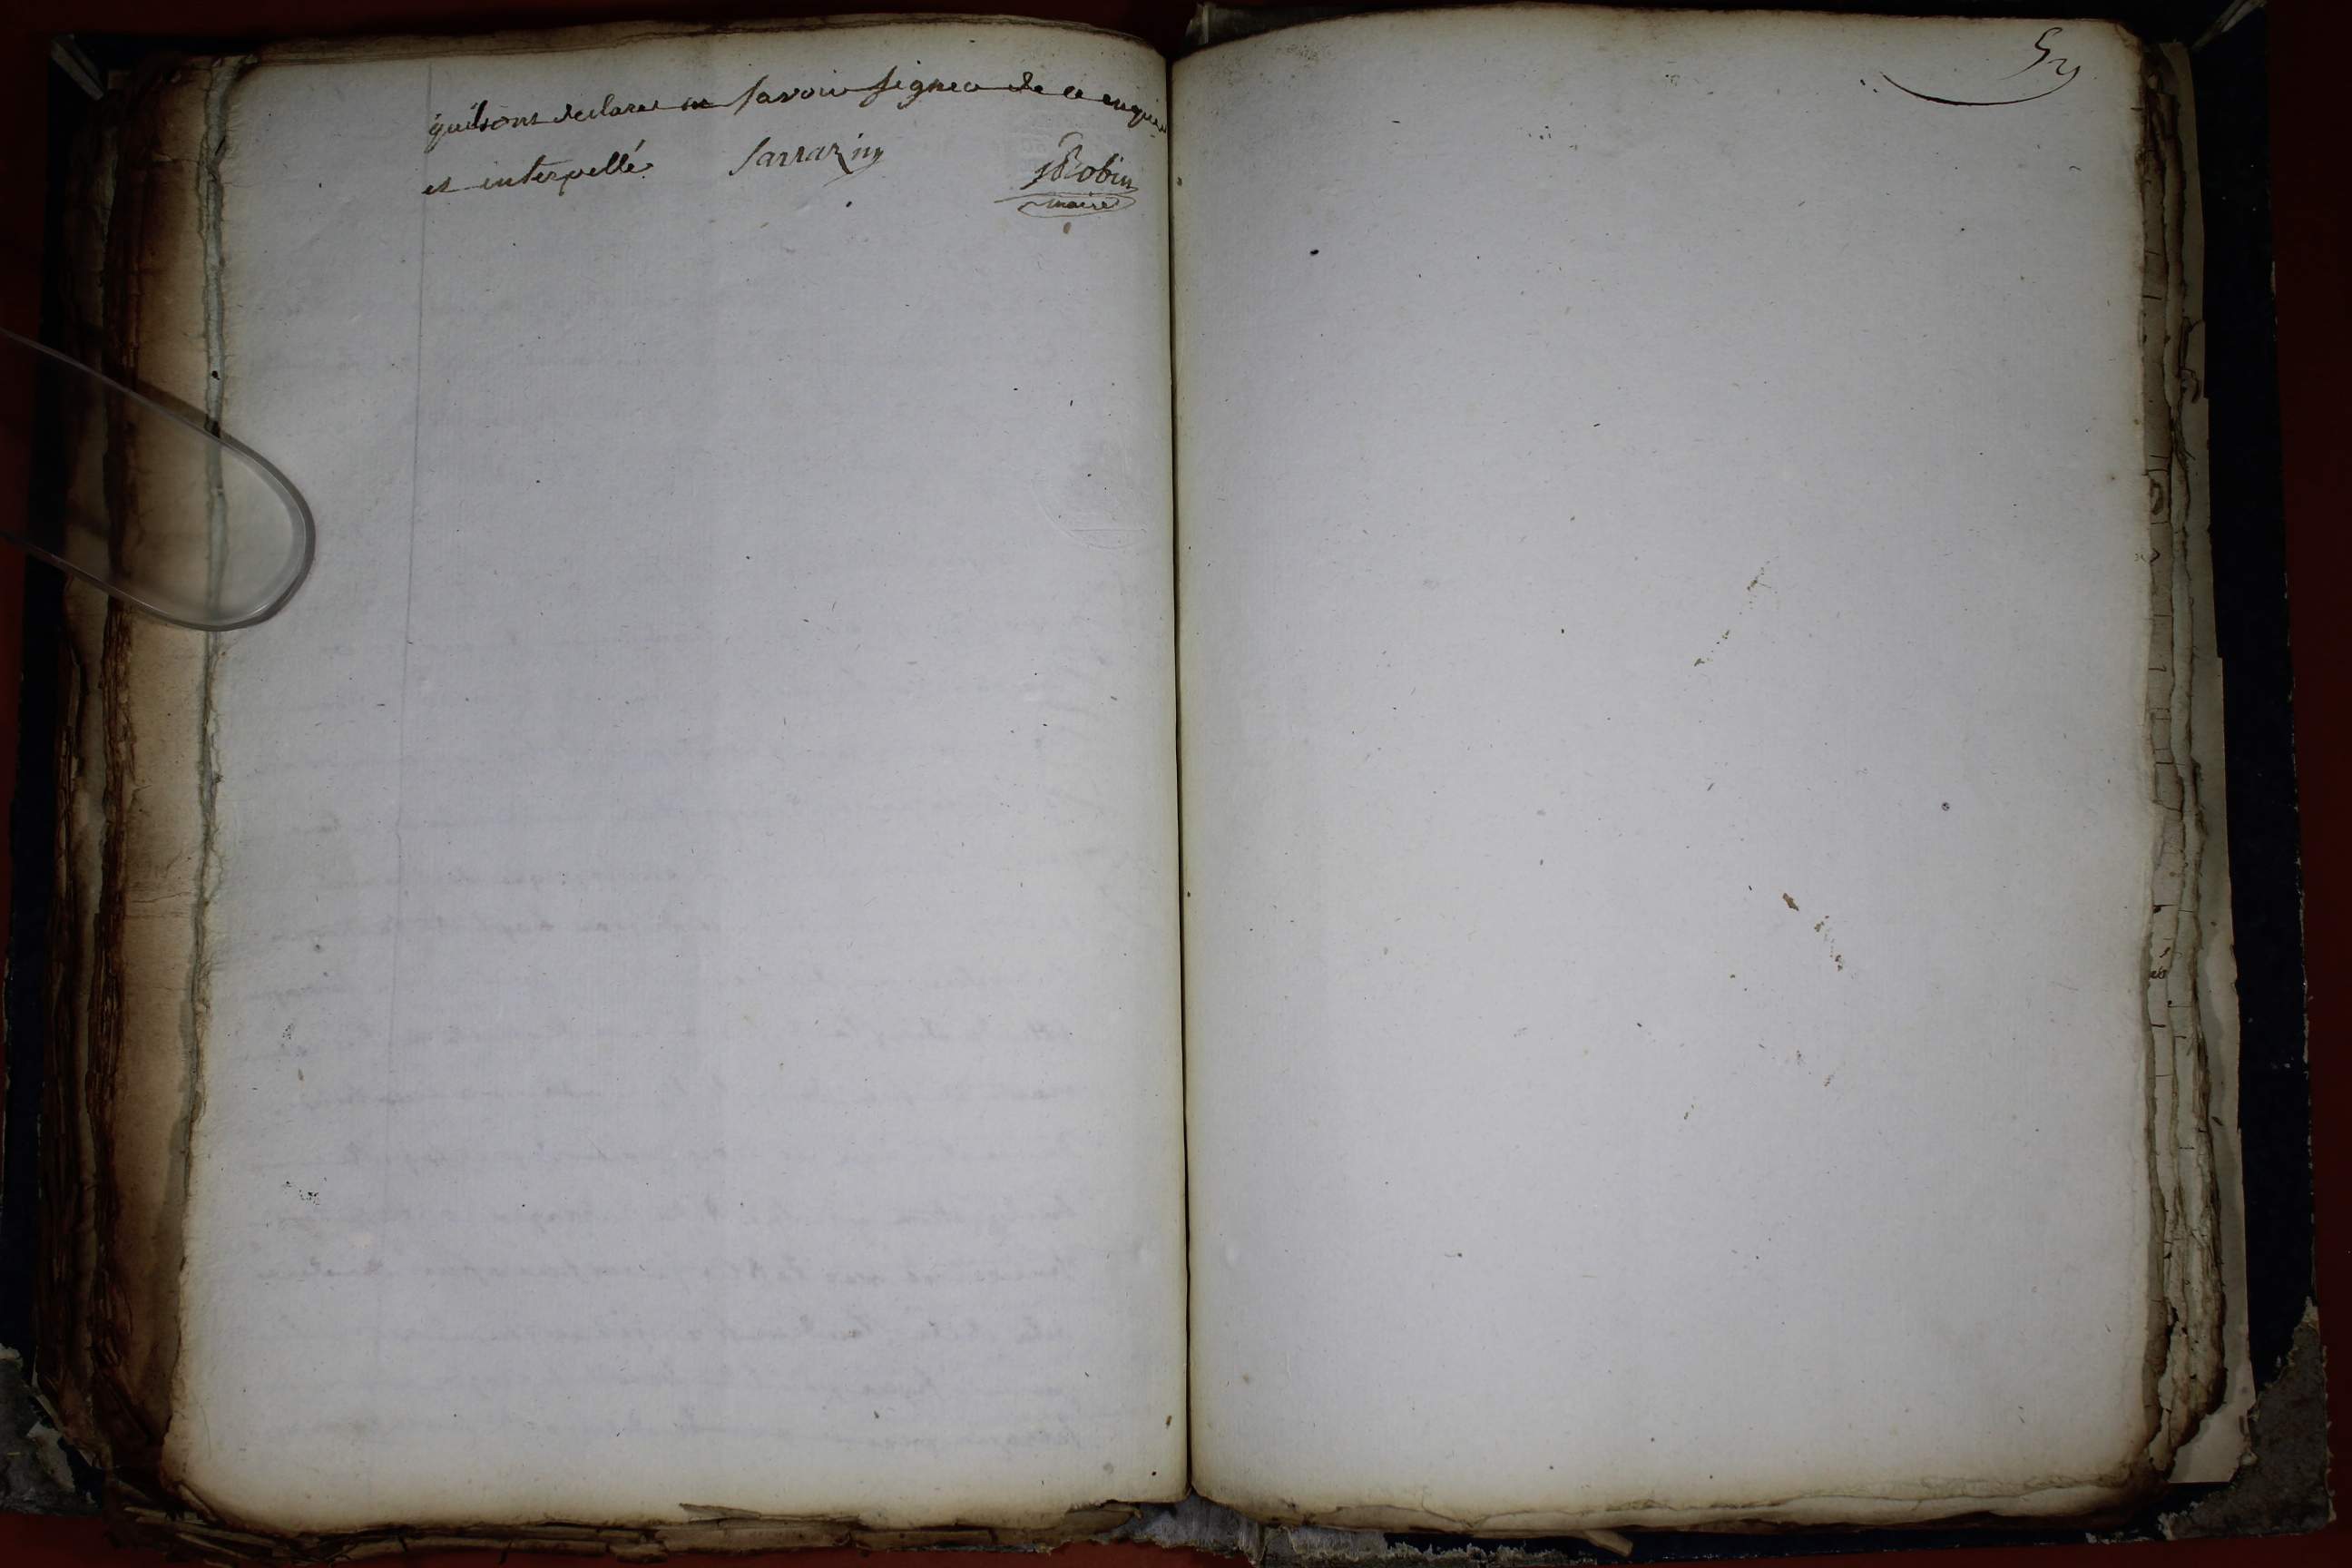 qu'ils ont declaré ne savoir signer de ce enquis
et interpellé Sarrazin Robin
maire